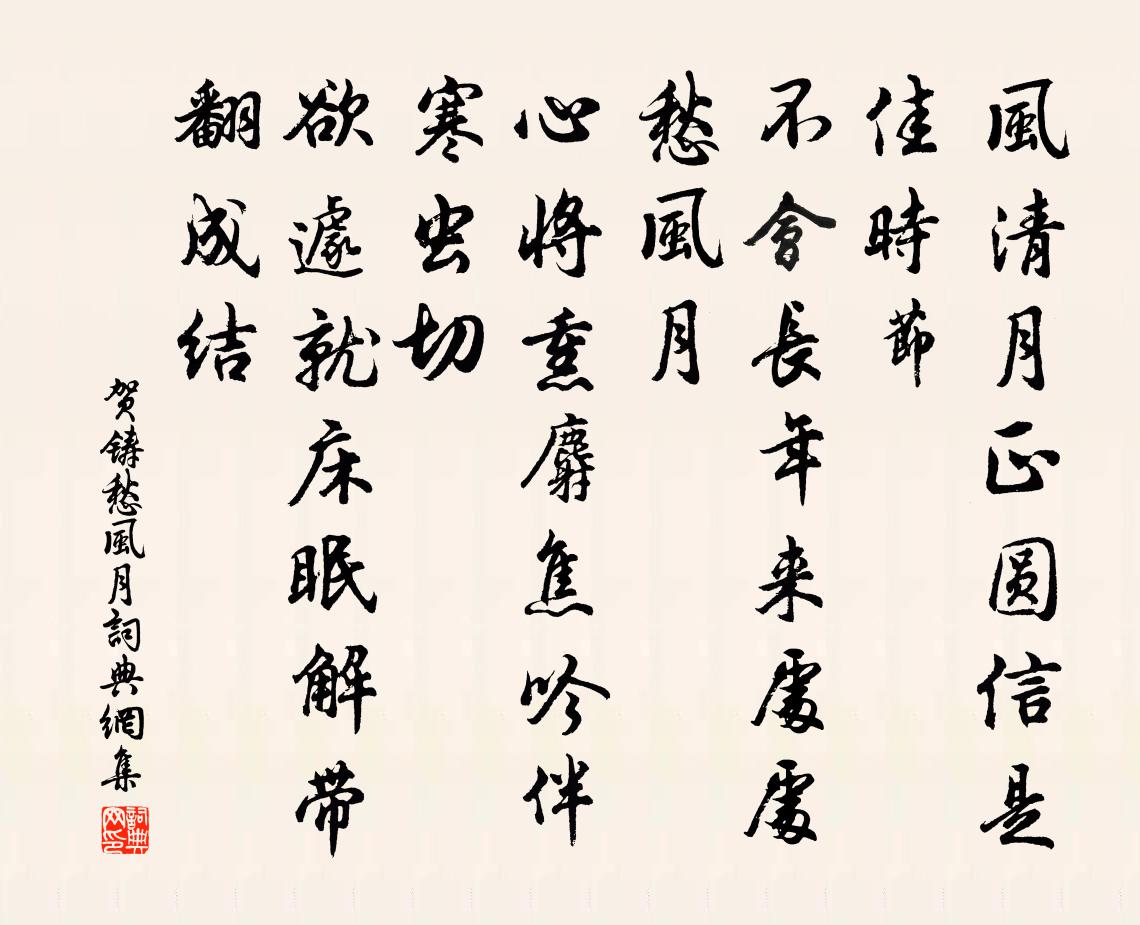 風清月正圓信是
佳時節
不會長年来處處
愁風月
心將熏麝焦吟伴
寒虫切
欲遽就床眠解带
翻成结
贺鑄愁風月詞典網集
詞典网印